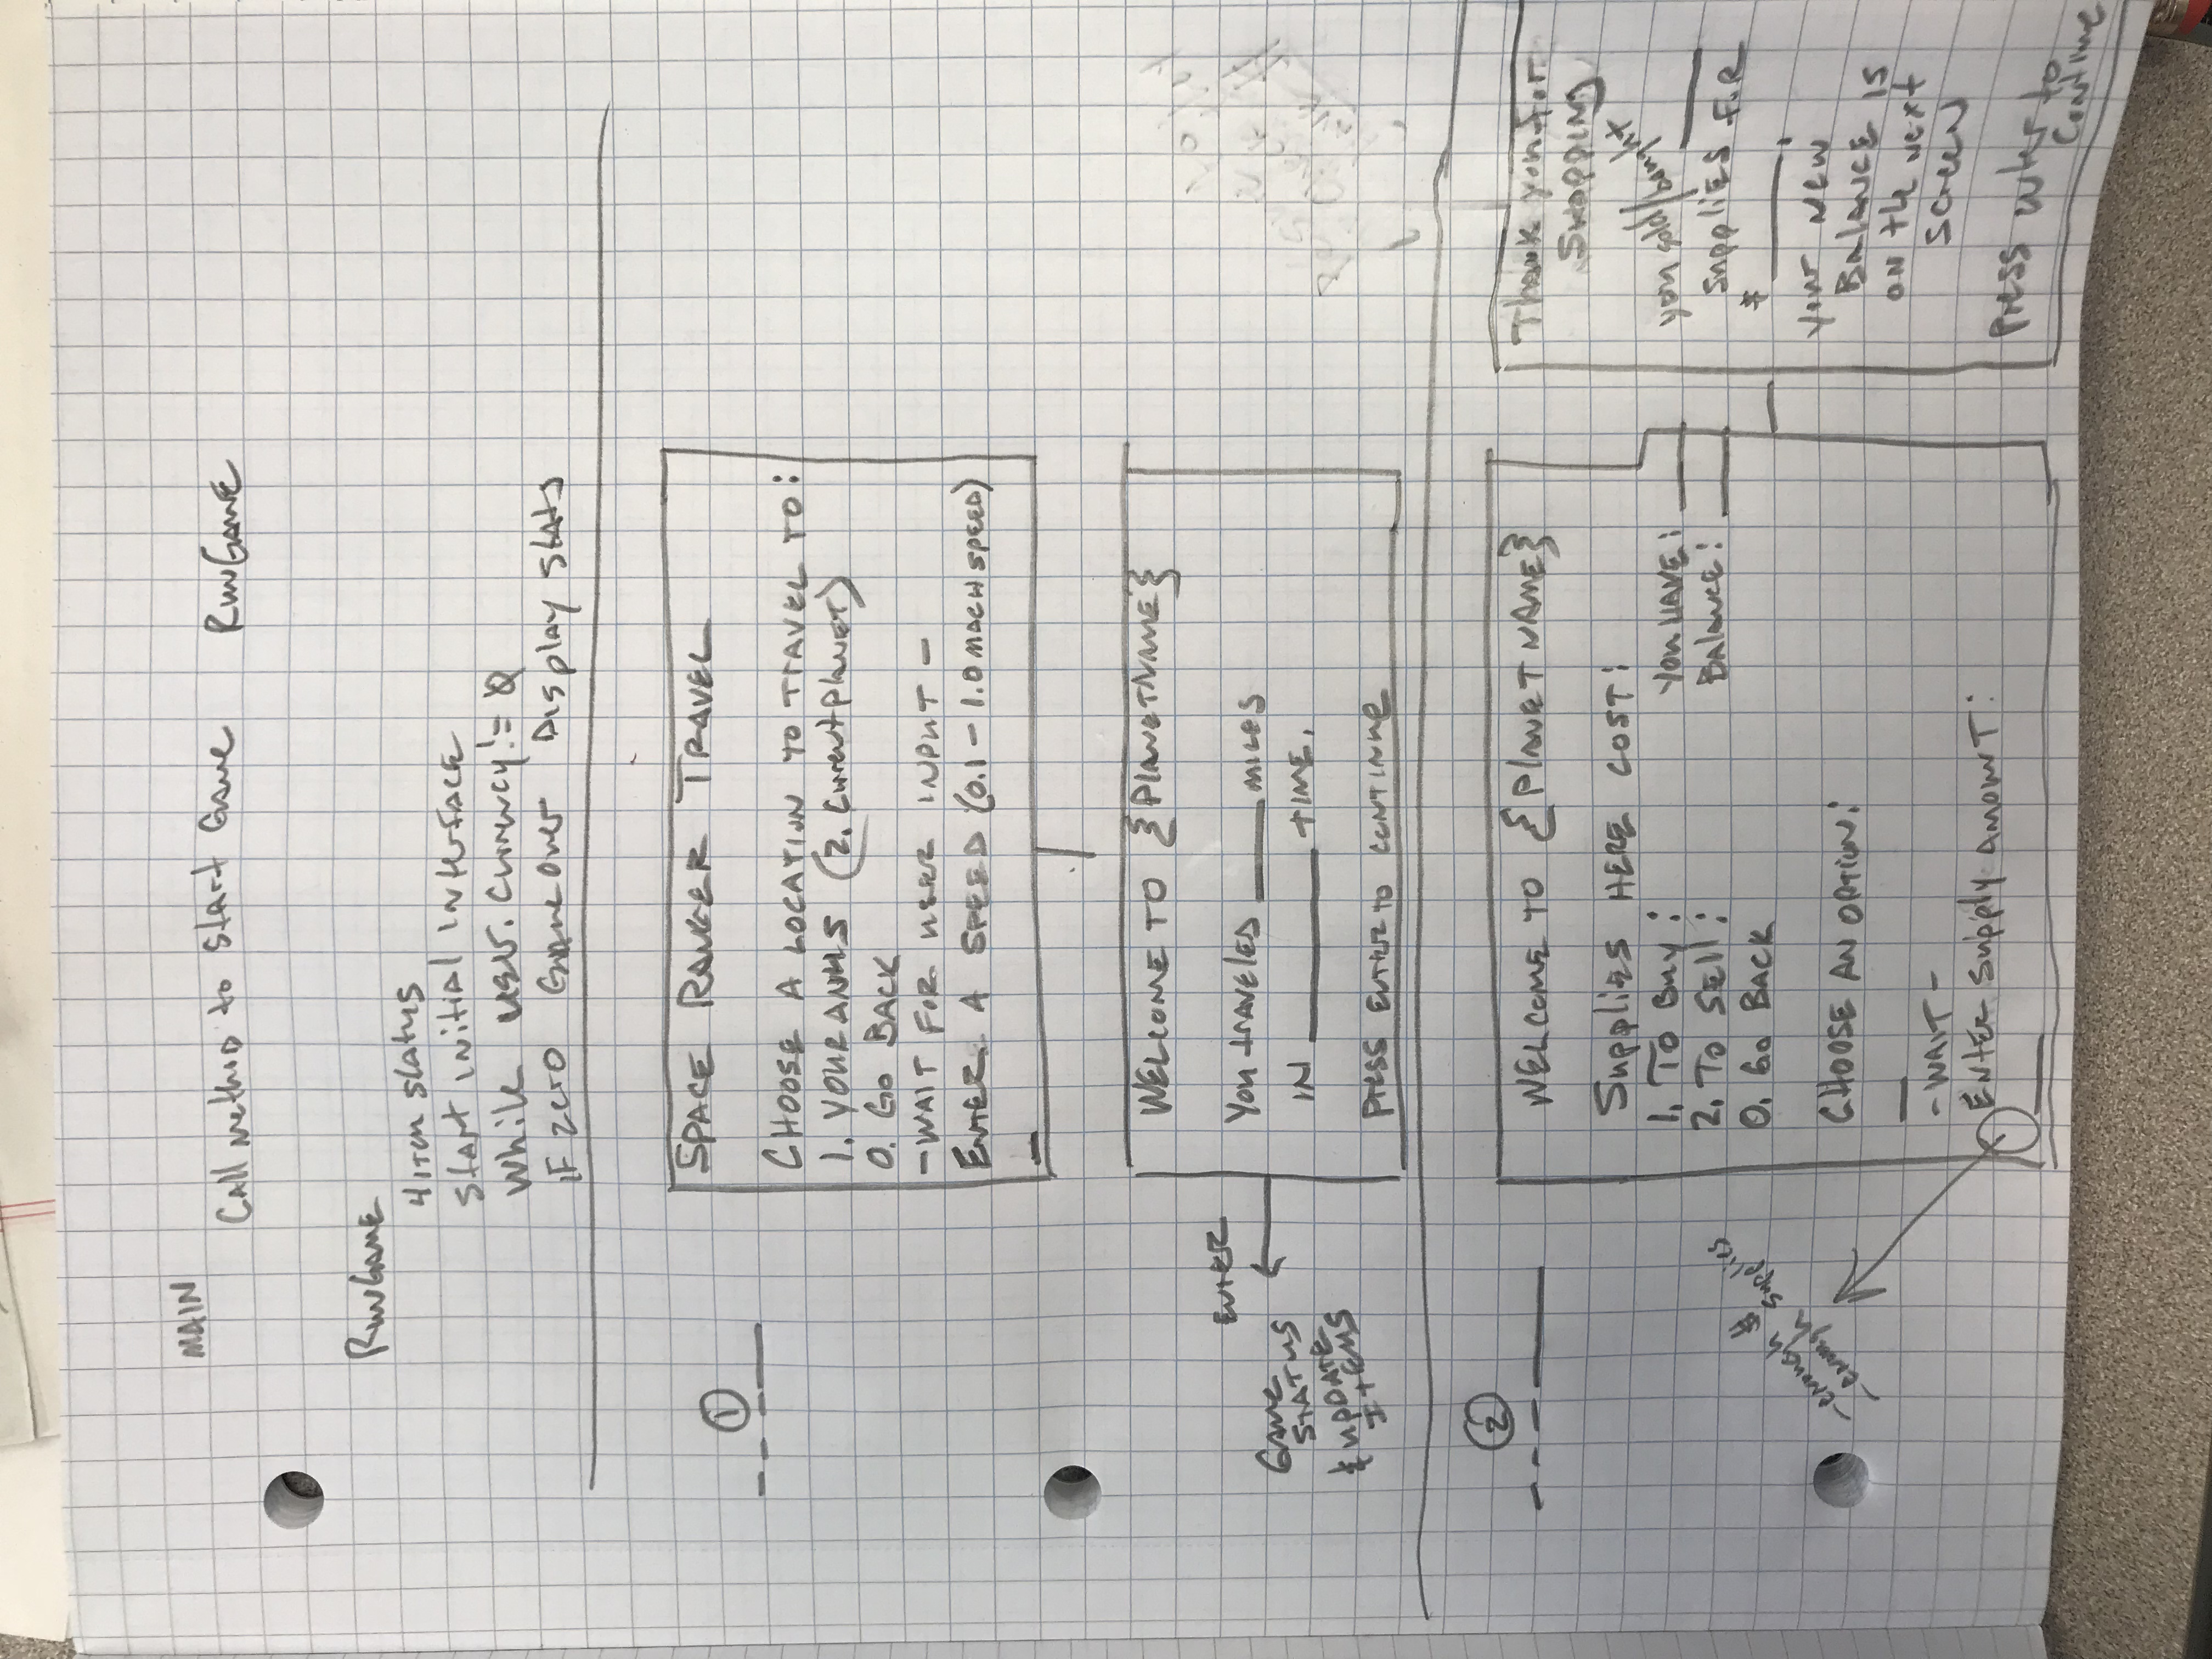 MAIN
Call method to start Game RunGame
RunGame
4 item status
Start initial interface
While user.currency != 0
IF zero GameOver Display stats
1
SPACE RANGER TRAVEL
CHOOSE A LOCATION TO TRAVEL TO:
1. YOURANUS (2. CurrentPlanet)
0. GO BACK
-WAIT FOR USER INPUT-
ENTER A SPEED (0.1 - 1.0 MACH SPEED)
WELCOME TO {PlanetName}
You traveled ____ miles
IN ____ TIME.
Press enter to continue
ENTER
Game
STATUS
& UPDATE
ITEMS
2
WELCOME TO {PLANET NAME}
Supplies HERE COST:
1. To Buy: You HAVE: ____
2. To Sell: Balance: ____
0. Go BACK
CHOOSE AN OPTION:
-WAIT-
ENTER Supply AMOUNT:
-enough $
-enough supplies
Thank you for
Shopping
you sold/bought ____
supplies FOR
$ ____.
your new
Balance is
on the next
screen
Press enter to
continue